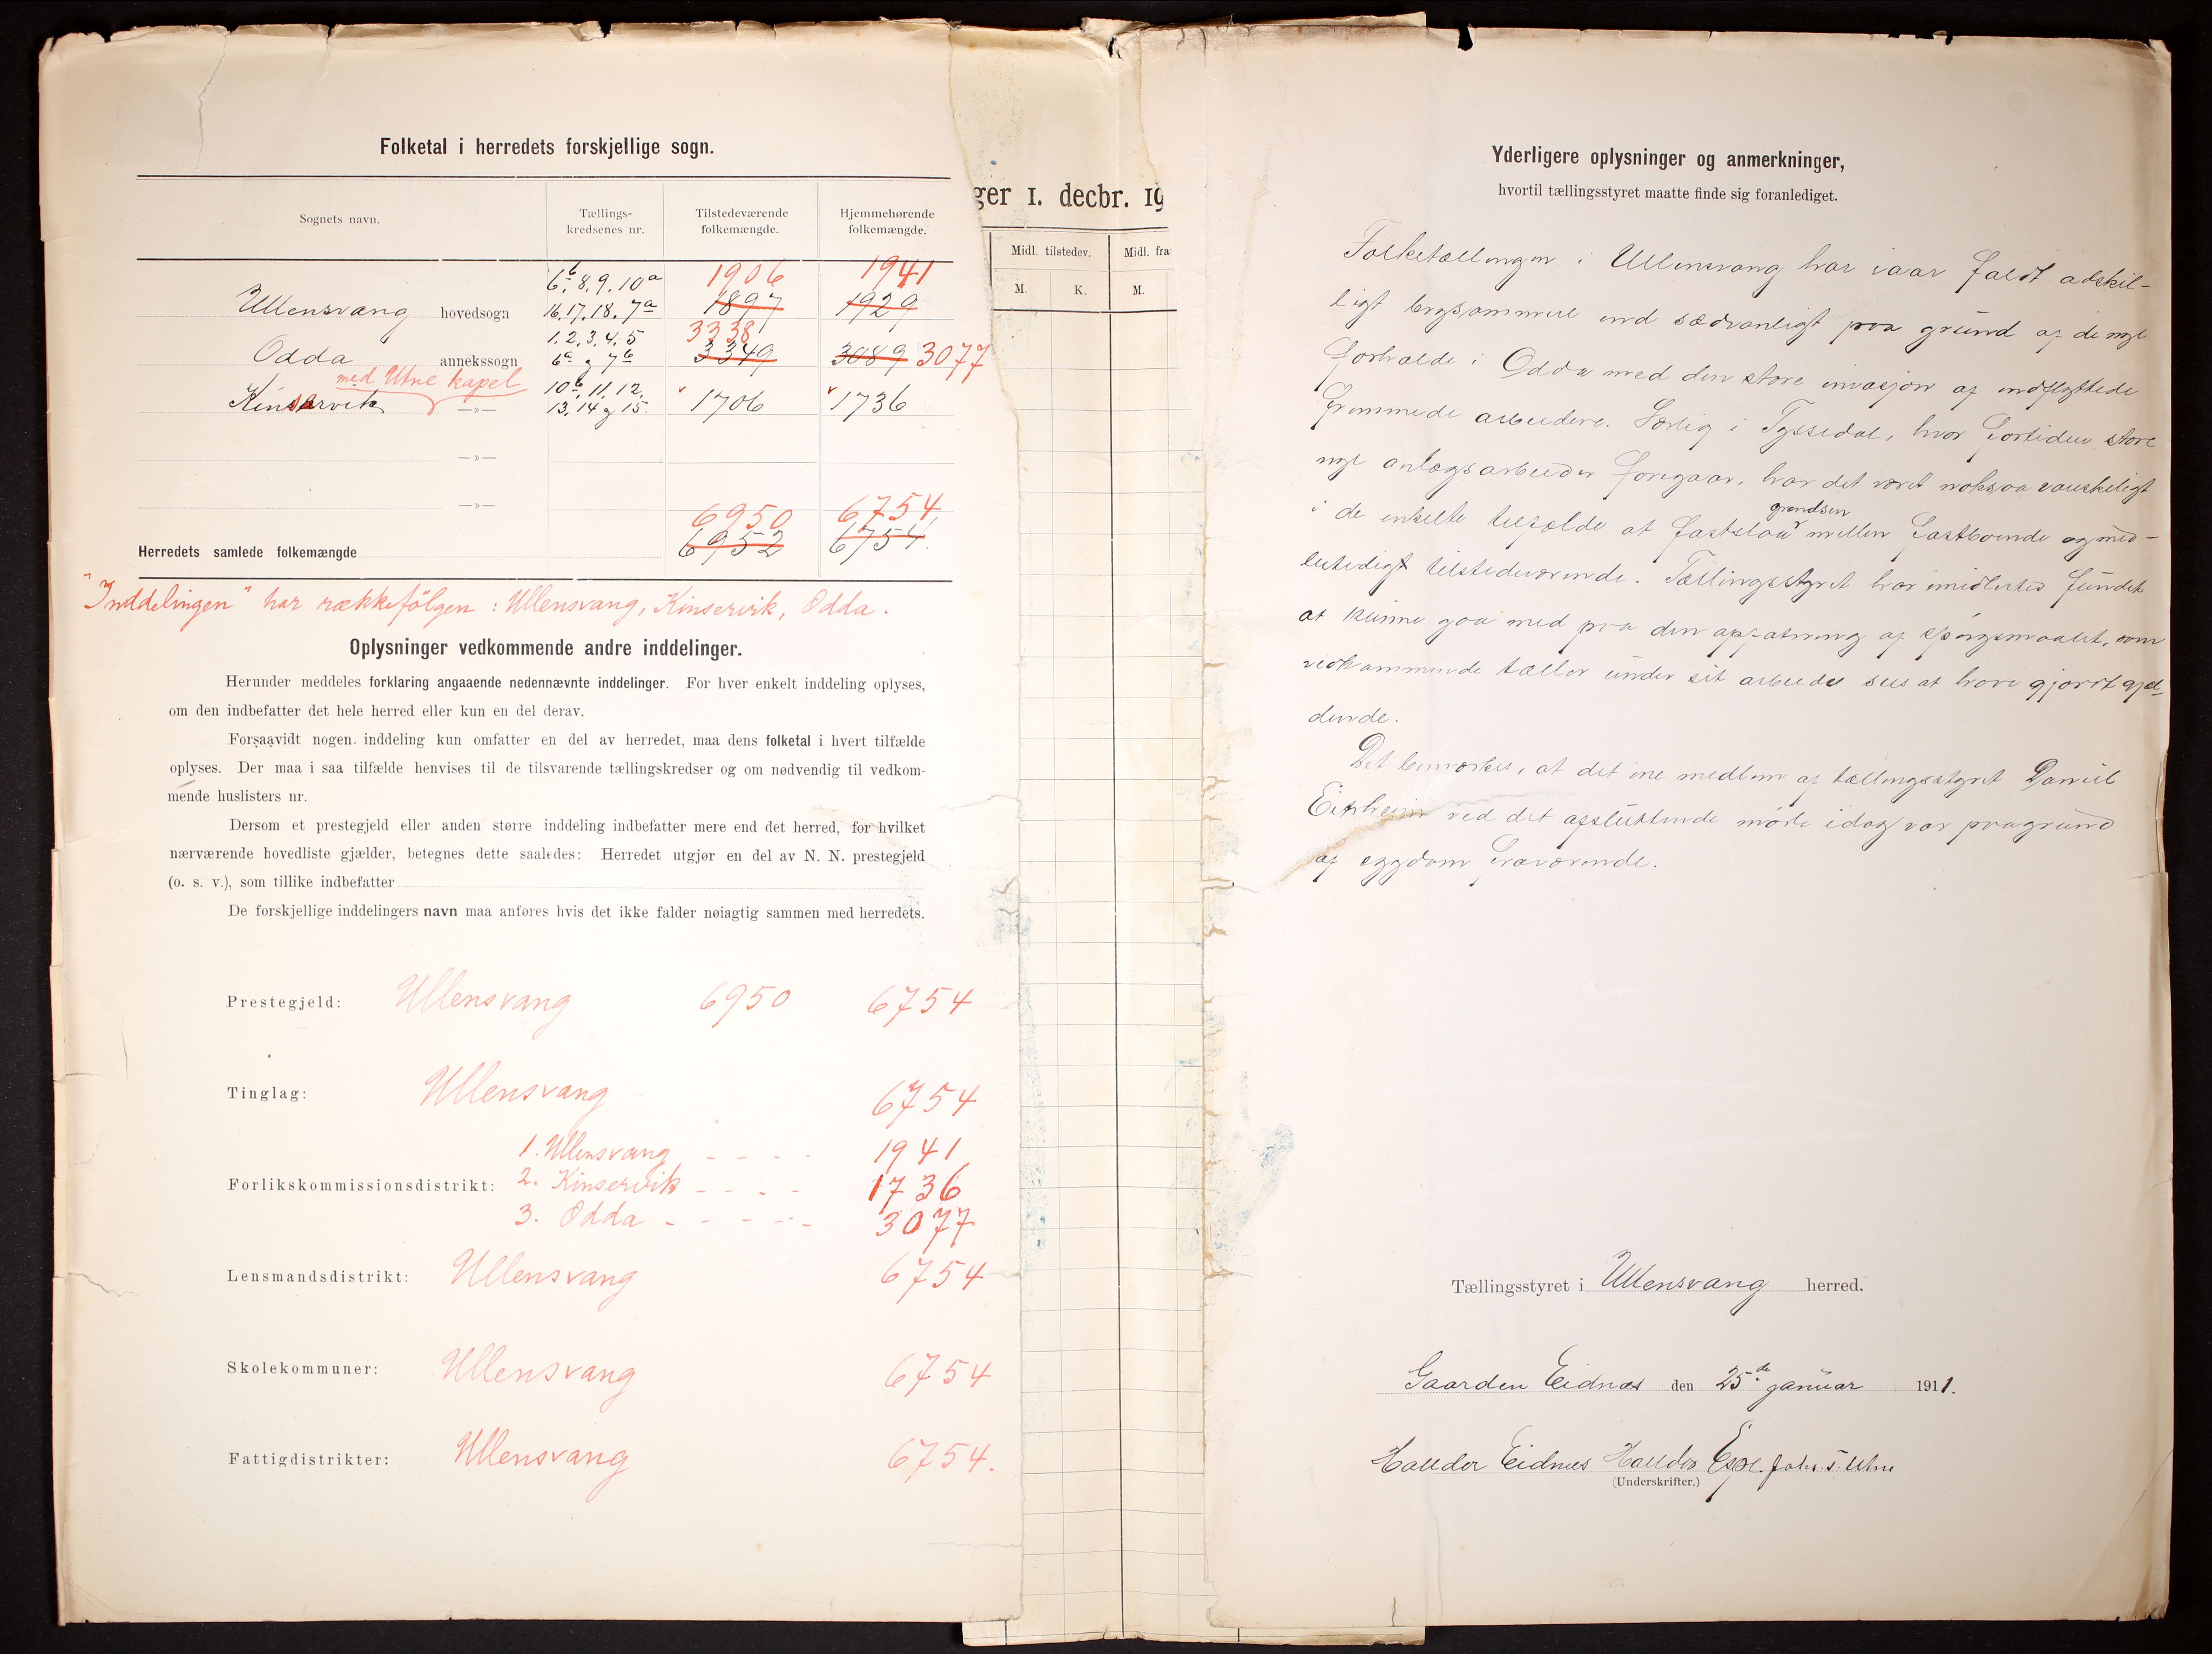 Folketal i herredets forskjellige sogn.
Sognets navn.
Tællings-
kredsenes nr.
Tilstedeværende
folkemængde.
Hjemmehørende
folkemængde.
6b, 8. 9. 10a 1906 1941
Ullensvang hovedsogn 16, 17, 18. 7a 1897 1929
1. 2. 3. 4. 5 3338
Odda annekssogn 6a og 7b 3349 3089 3077
med Utne kapel
Kinservik —»— 10b, 11, 12, 13, 14 og 15. 1706 1736
—»—
—»—
6950 6754
Herredets samlede folkemængde 6952 6754.
"Inddelingen" har rækkefölgen: Ullensvang, Kinservik, Odda.
Oplysninger vedkommende andre inddelinger.
Herunder meddeles forklaring angaaende nedennævnte inddelinger. For hver enkelt inddeling oplyses,
om den indbefatter det hele herred eller kun en del derav.
Forsaavidt nogen inddeling kun omfatter en del av herredet, maa dens folketal i hvert tilfælde
oplyses. Der maa i saa tilfælde henvises til de tilsvarende tællingskredser og om nødvendig til vedkom-
mende huslisters nr.
Dersom et prestegjeld eller anden større inddeling indbefatter mere end det herred, for hvilket
nærværende hovedliste gjælder, betegnes dette saaledes: Herredet utgjør en del av N. N. prestegjeld
(o. s. v.), som tillike indbefatter
De forskjellige inddelingers navn maa anføres hvis det ikke falder nøiagtig sammen med herredets.
Prestegjeld: Ullensvang 6950 6754
Tinglag: Ullensvang 6754
1. Ullensvang - - - - 1941
Forlikskommissionsdistrikt: 2. Kinservik - - - - 1736
3. Odda - - - - - 3077
Lensmandsdistrikt: Ullensvang 6754
Skolekommuner: Ullensvang 6754
Fattigdistrikter: Ullensvang 6754.
ger 1. decbr. 19
Midl. tilstedev. Midl. fra
M. K. M.
Yderligere oplysninger og anmerkninger,
hvortil tællingsstyret maatte finde sig foranlediget.
Folketællingen i Ullensvang har iaar faldt adskil-
ligt langsommere end sædvanligt paa grund af de nye
forholde i Odda med den store invasjon af indflyttede
fremmede arbeidere. Særlig i Tyssedal, hvor fortiden store
nye anlægsarbeider foregaar, har det været noksaa vanskeligt
i de enkelte tilfælde at fastslaa grændsen mellem fastboende og mid-
lertidigt tilstedeværende. Tællingsstyret har imidlertid fundet
at kunne gaa med paa den opfatning af spörgsmaalet, som
vedkommende tæller under sit arbeide sees at have gjort gjæl-
dende.
Det bemærkes, at det ene medlem af tællingsstyret Daniel
Eitrheim ved det afsluttende möte idag var paagrund
af sygdom fraværende.
Tællingsstyret i Ullensvang herred.
Gaarden Eidnæs den 25de januar 1911.
Halldor Eidnes Halldor Espe. Johs. T. Utne
(Underskrifter.)